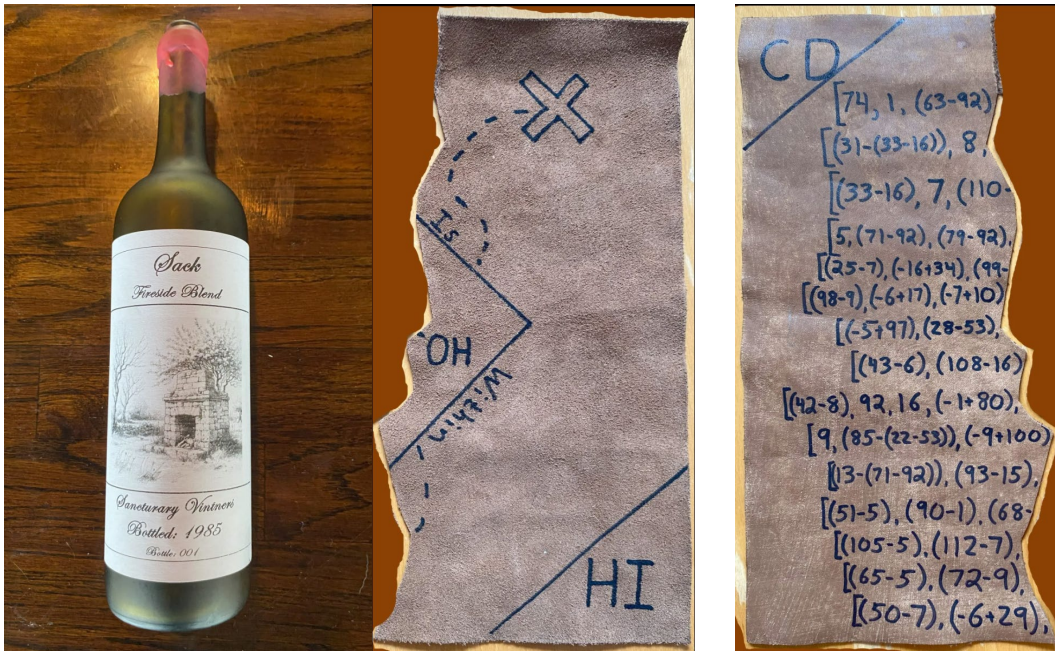 Sack
Fireside Blend
Sancturary Vintners
Bottled: 1985
Bottle: 001
X
IS
OH
Within
HI
CD
[74, 1, (63-92)
[(31-(33-16)), 8,
[(33-16), 7, (110-
[5, (71-92), (79-92),
[(25-7), (-16+34), (99-
[(98-9), (-6+17), (-7+10)
[(-5+97), (28-53),
[(43-6), (108-16)
[(42-8), 92, 16, (-1+80),
[9, (85-(22-53)), (-9+100)
[(13-(71-92)), (93-15),
[(51-5), (90-1), (68-
[(105-5), (112-7),
[(65-5), (72-9),
[(50-7), (-6+29),